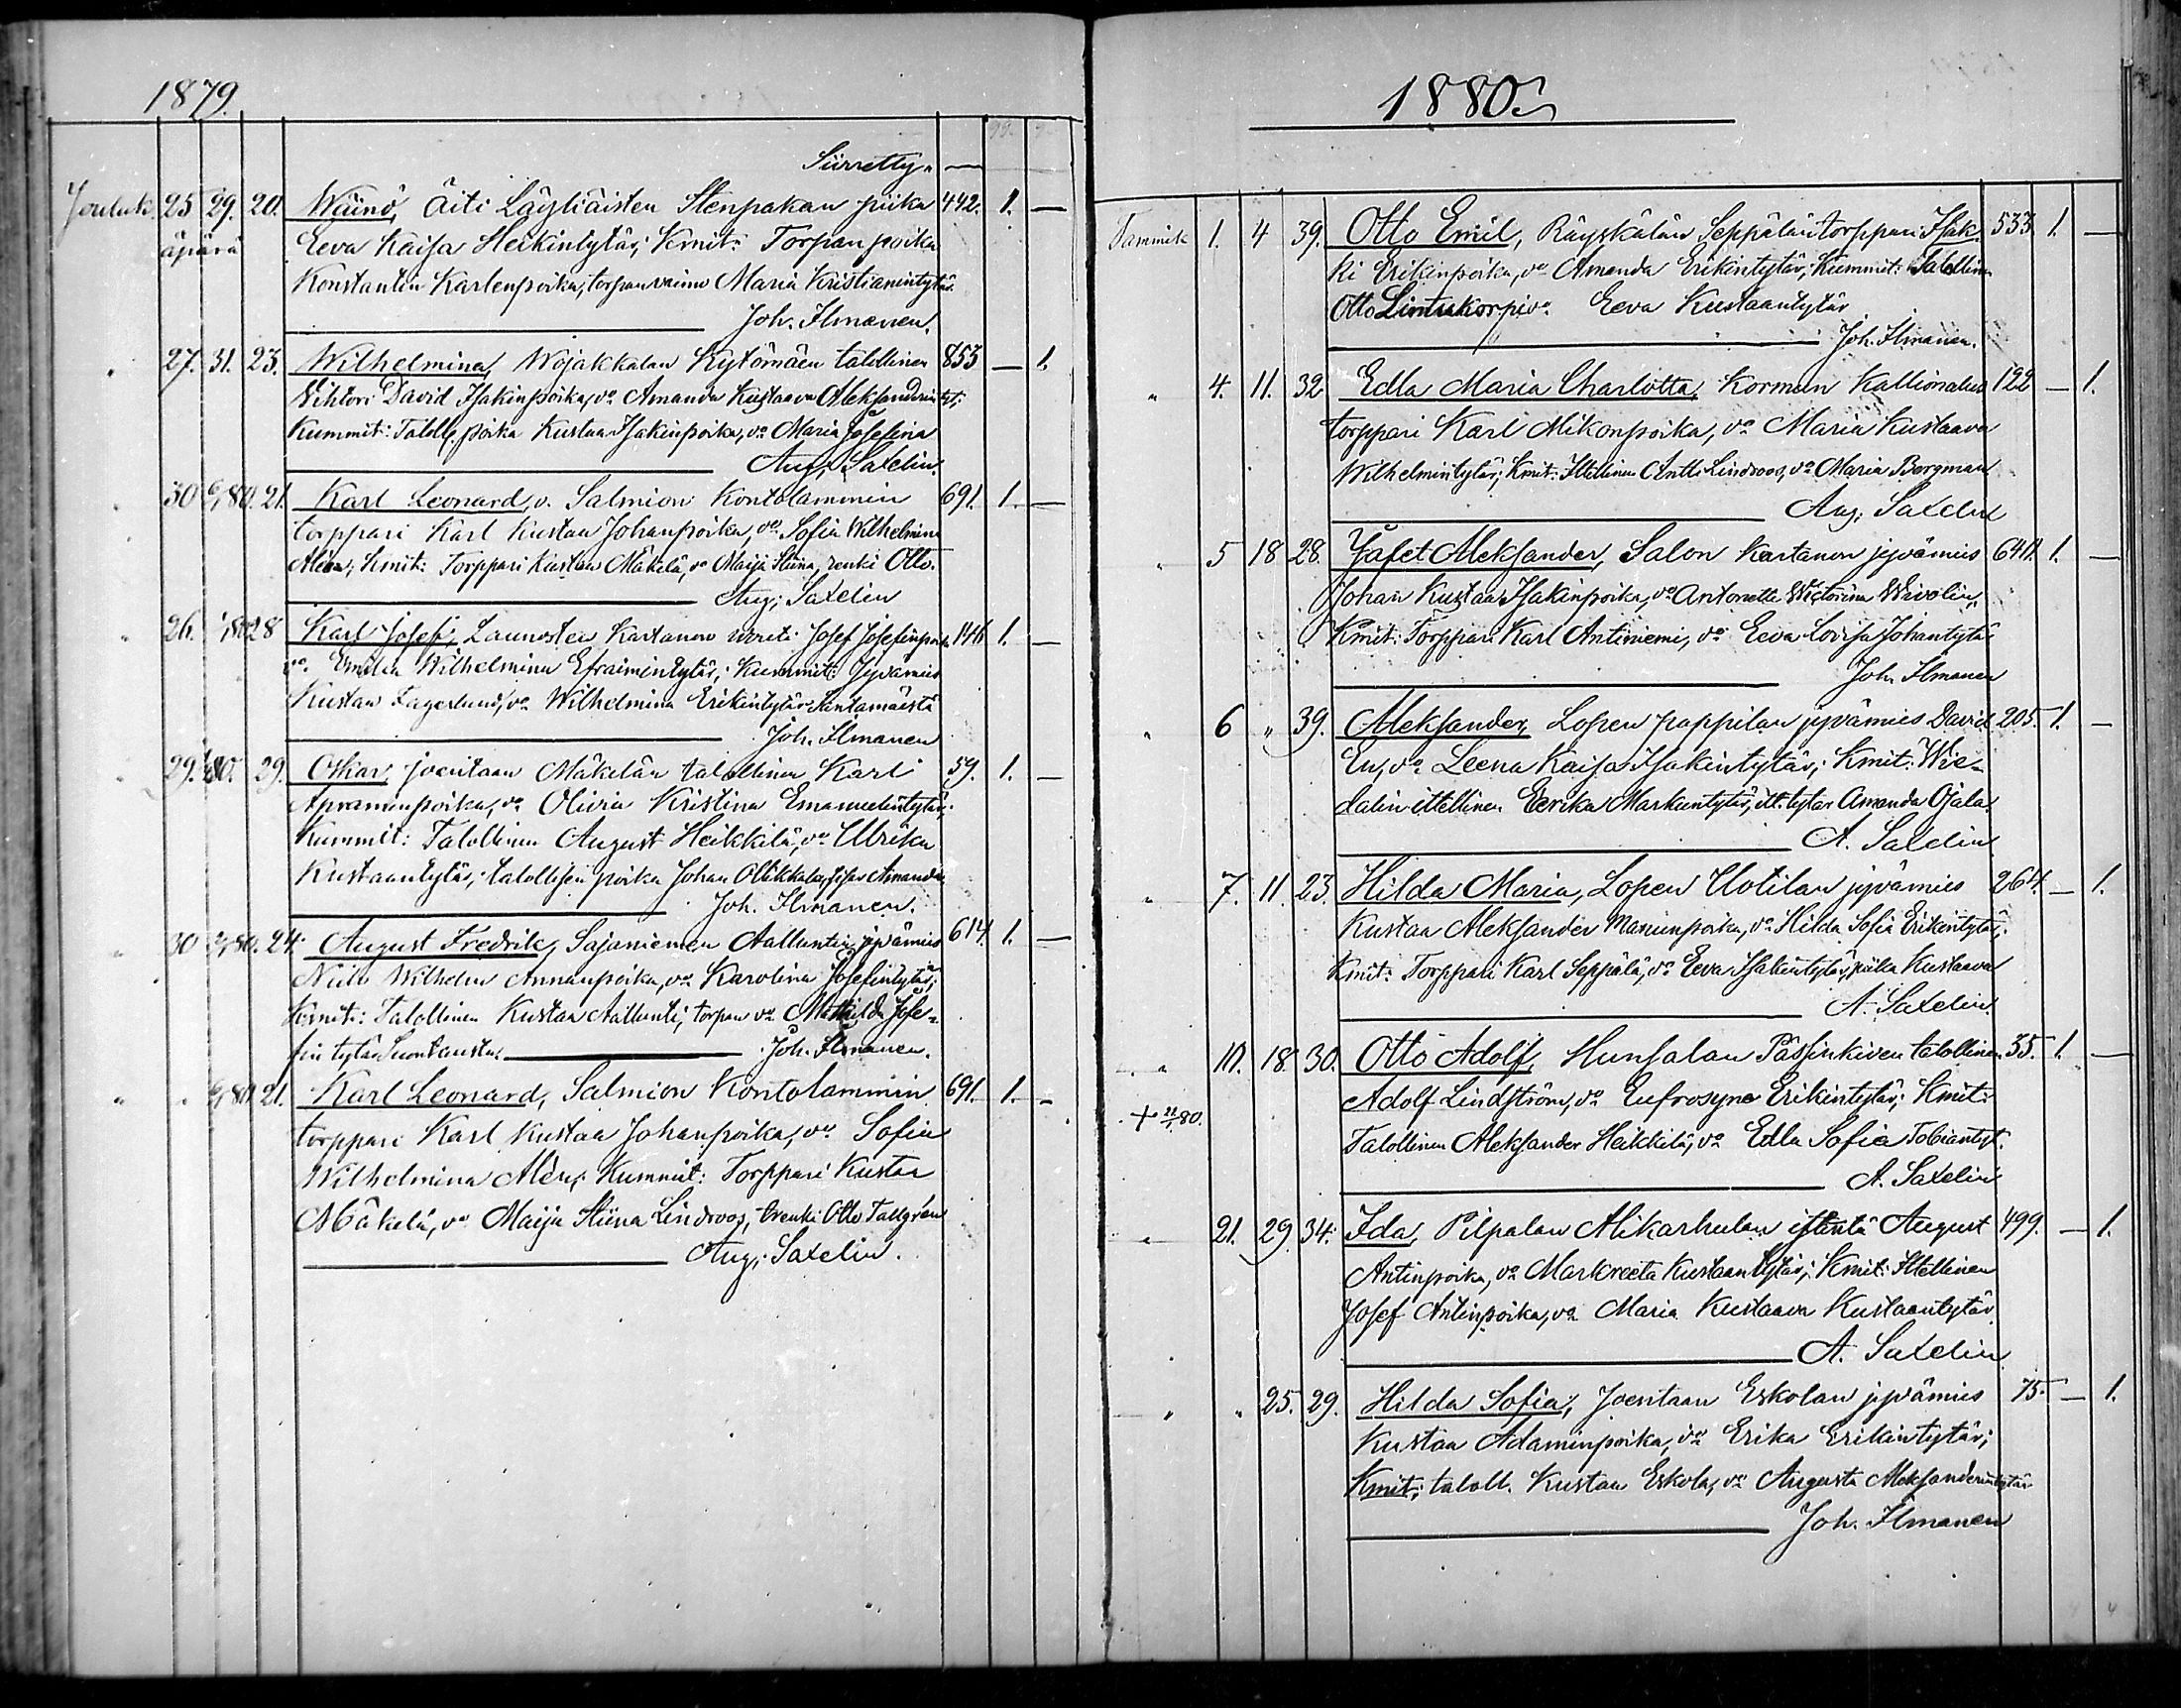 1879.
Siirretty. —
Jouluk. 25 29. 20. Wäinö, Äiti Läyliäisten Stenpakan piika 442. 1. —
äpärä Eeva Kaisa Heikintytär; Kmit: Torpan poika
Konstantin Karlenpoika, torpan vaimo Maria Kristianintytär
Joh. Ilmanen.
27. 31. 23. Wilhelmina, Wojakkalan Kytömäen talollinen 853 — 1.
Wihtori David Isakinpoika, vo Amanda Kustaava Aleksanderin tyt.
Kummit: Taloll. poika Kustaa Isakinpoika, vo Maria Josefina
Aug. Saxelin.
30 80. 21. Karl Leonard, v. Salmion Kontolammin 691. 1. —
torppari Karl Kustaa Johanpoika, vo Sofia Wilhelmina
Alén; Kmit: Torppari Kustaa Mäkelä, vo Maija Stiina, renki Otto.
Aug. Saxelin
26. 28 Karl Josef, Launosten Kartanon Josef Josefinpoika 1. —
vo Wilhelmina Efraimintytär; Kummit: Jyvämies
Kustaa Fagerlund, vo Wilhelmina Erikintytär Santamäestä
Joh. Ilmanen
29. 80. 29. Oskar, Joentaan Mäkelän talollinen Karl 59. 1. —
Apraminpoika, vo Olivia Kristina Emanuelintytär;
Kummit: Talollinen August Heikkilä, vo Ulrika
Kustaantytär; talollisen poika Johan Ollikkala, Amanda
Joh. Ilmanen.
30 80. 24. August Fredrik, Sajaniemen Aalluntin jyvämies 614. 1. —
Niilo Wilhelm Annanpoika, vo Karolina Josefintytär;
Kmit: Talollinen Kustaa Aallunti, torpan vo Mathilda Jose-
fintytär Suontausta. Joh. Ilmanen.
" 80. 21. Karl Leonard, Salmion Kontolammin 691. 1. -
torppari Karl Kustaa Johanpoika, vo Sofia
Wilhelmina Alén; Kummit: Torppari Kustaa
Mäkelä, vo Maija Stiina Lindroos, renki Otto Tallgrén
Aug. Saxelin.
1880.
Tammik 1. 4 39. Otto Emil, Räyskälän Seppälän torppari Isak- 533. 1. —
ki Erikinpoika, vo Amanda Erikintytär; Kummit: Talollinen
Otto Lintukorpi vo Eeva Kustaantytär
Joh. Ilmanen.
" 4. 11. 32 Edla Maria Charlotta, Kormun Kallionalus 122 — 1.
torppari Karl Mikonpoika, vo Maria Kustaava
Wilhelmintytär; Kmit: Itellinen Antti Lindroos, vo Maria Bergman
Aug. Saxelin
" 5 18 28. Jafet Aleksander, Salon Kartanon jyvämies 640. 1. —
Johan Kustaa Isakinpoika, vo Antonetta Wictorina Wivolin,
Kmit: Torppari Karl Antiniemi, vo Eeva Lovisa Johantytär
Joh. Ilmanen
" 6 " 39. Aleksander, Lopen pappilan jyvämies David 205. 1. —
En, vo Leena Kaisa Isakintytär; Kmit: Wie-
dalin itellinen Eerika Markuntytär, itt. tytär Amanda Ojala
A. Saxelin
" 7. 11. 23. Hilda Maria, Lopen Uotilan jyvämies 264. — 1.
Kustaa Aleksander Manuunpoika, vo Hilda Sofia Erikintytär;
Kmit: Torppari Karl Seppälä, vo Eeva Isakintytär, piika Kustaava
A. Saxelin.
" 10. 18. 30. Otto Adolf, Hunsalan Pässinkiven talollinen 35. 1. —
+ 22/80. Adolf Lindström, vo Eufrosyne Erikintytär; Kmit:
Talollinen Aleksander Heikkilä, vo Edla Sofia Tobiantyt.
A. Saxelin
" 21. 29. 34. Ida, Pilpalan Alikarhulan isäntä August 499. — 1.
Antinpoika, vo Markreeta Kustaantytär; Kmit: Itellinen
Josef Antinpoika, vo Maria Kustaava Kustaantytär
A. Saxelin
" " 25. 29. Hilda Sofia, Joentaan Eskolan jyvämies 75. — 1.
Kustaa Adaminpoika, vo Erika Erikintytär;
Kmit; taloll. Kustaa Eskola, vo Augusta Aleksanderintytär
Joh. Ilmanen